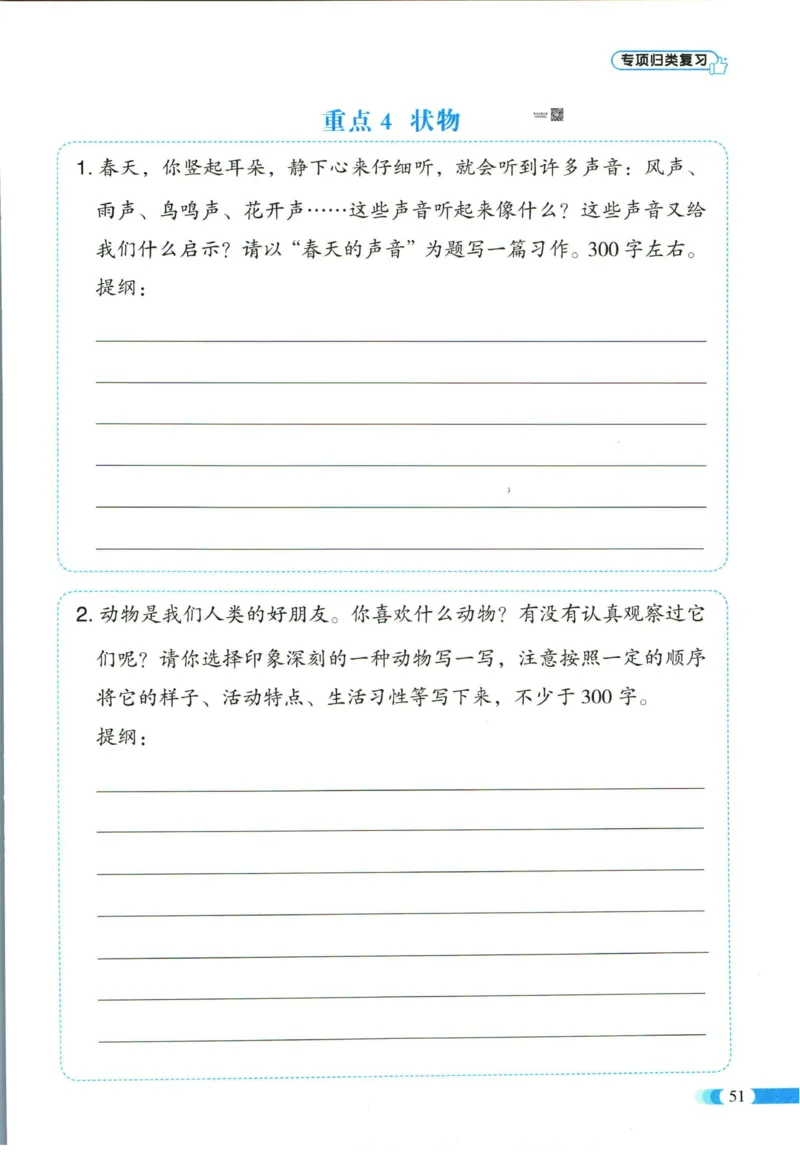 专项归类复习
重点 4 状物
1. 春天，你竖起耳朵，静下心来仔细听，就会听到许多声音：风声、
雨声、鸟鸣声、花开声……这些声音听起来像什么？这些声音又给
我们什么启示？请以“春天的声音”为题写一篇习作。300 字左右。
提纲：
2. 动物是我们人类的好朋友。你喜欢什么动物？有没有认真观察过它
们呢？请你选择印象深刻的一种动物写一写，注意按照一定的顺序
将它的样子、活动特点、生活习性等写下来，不少于 300 字。
提纲：
51